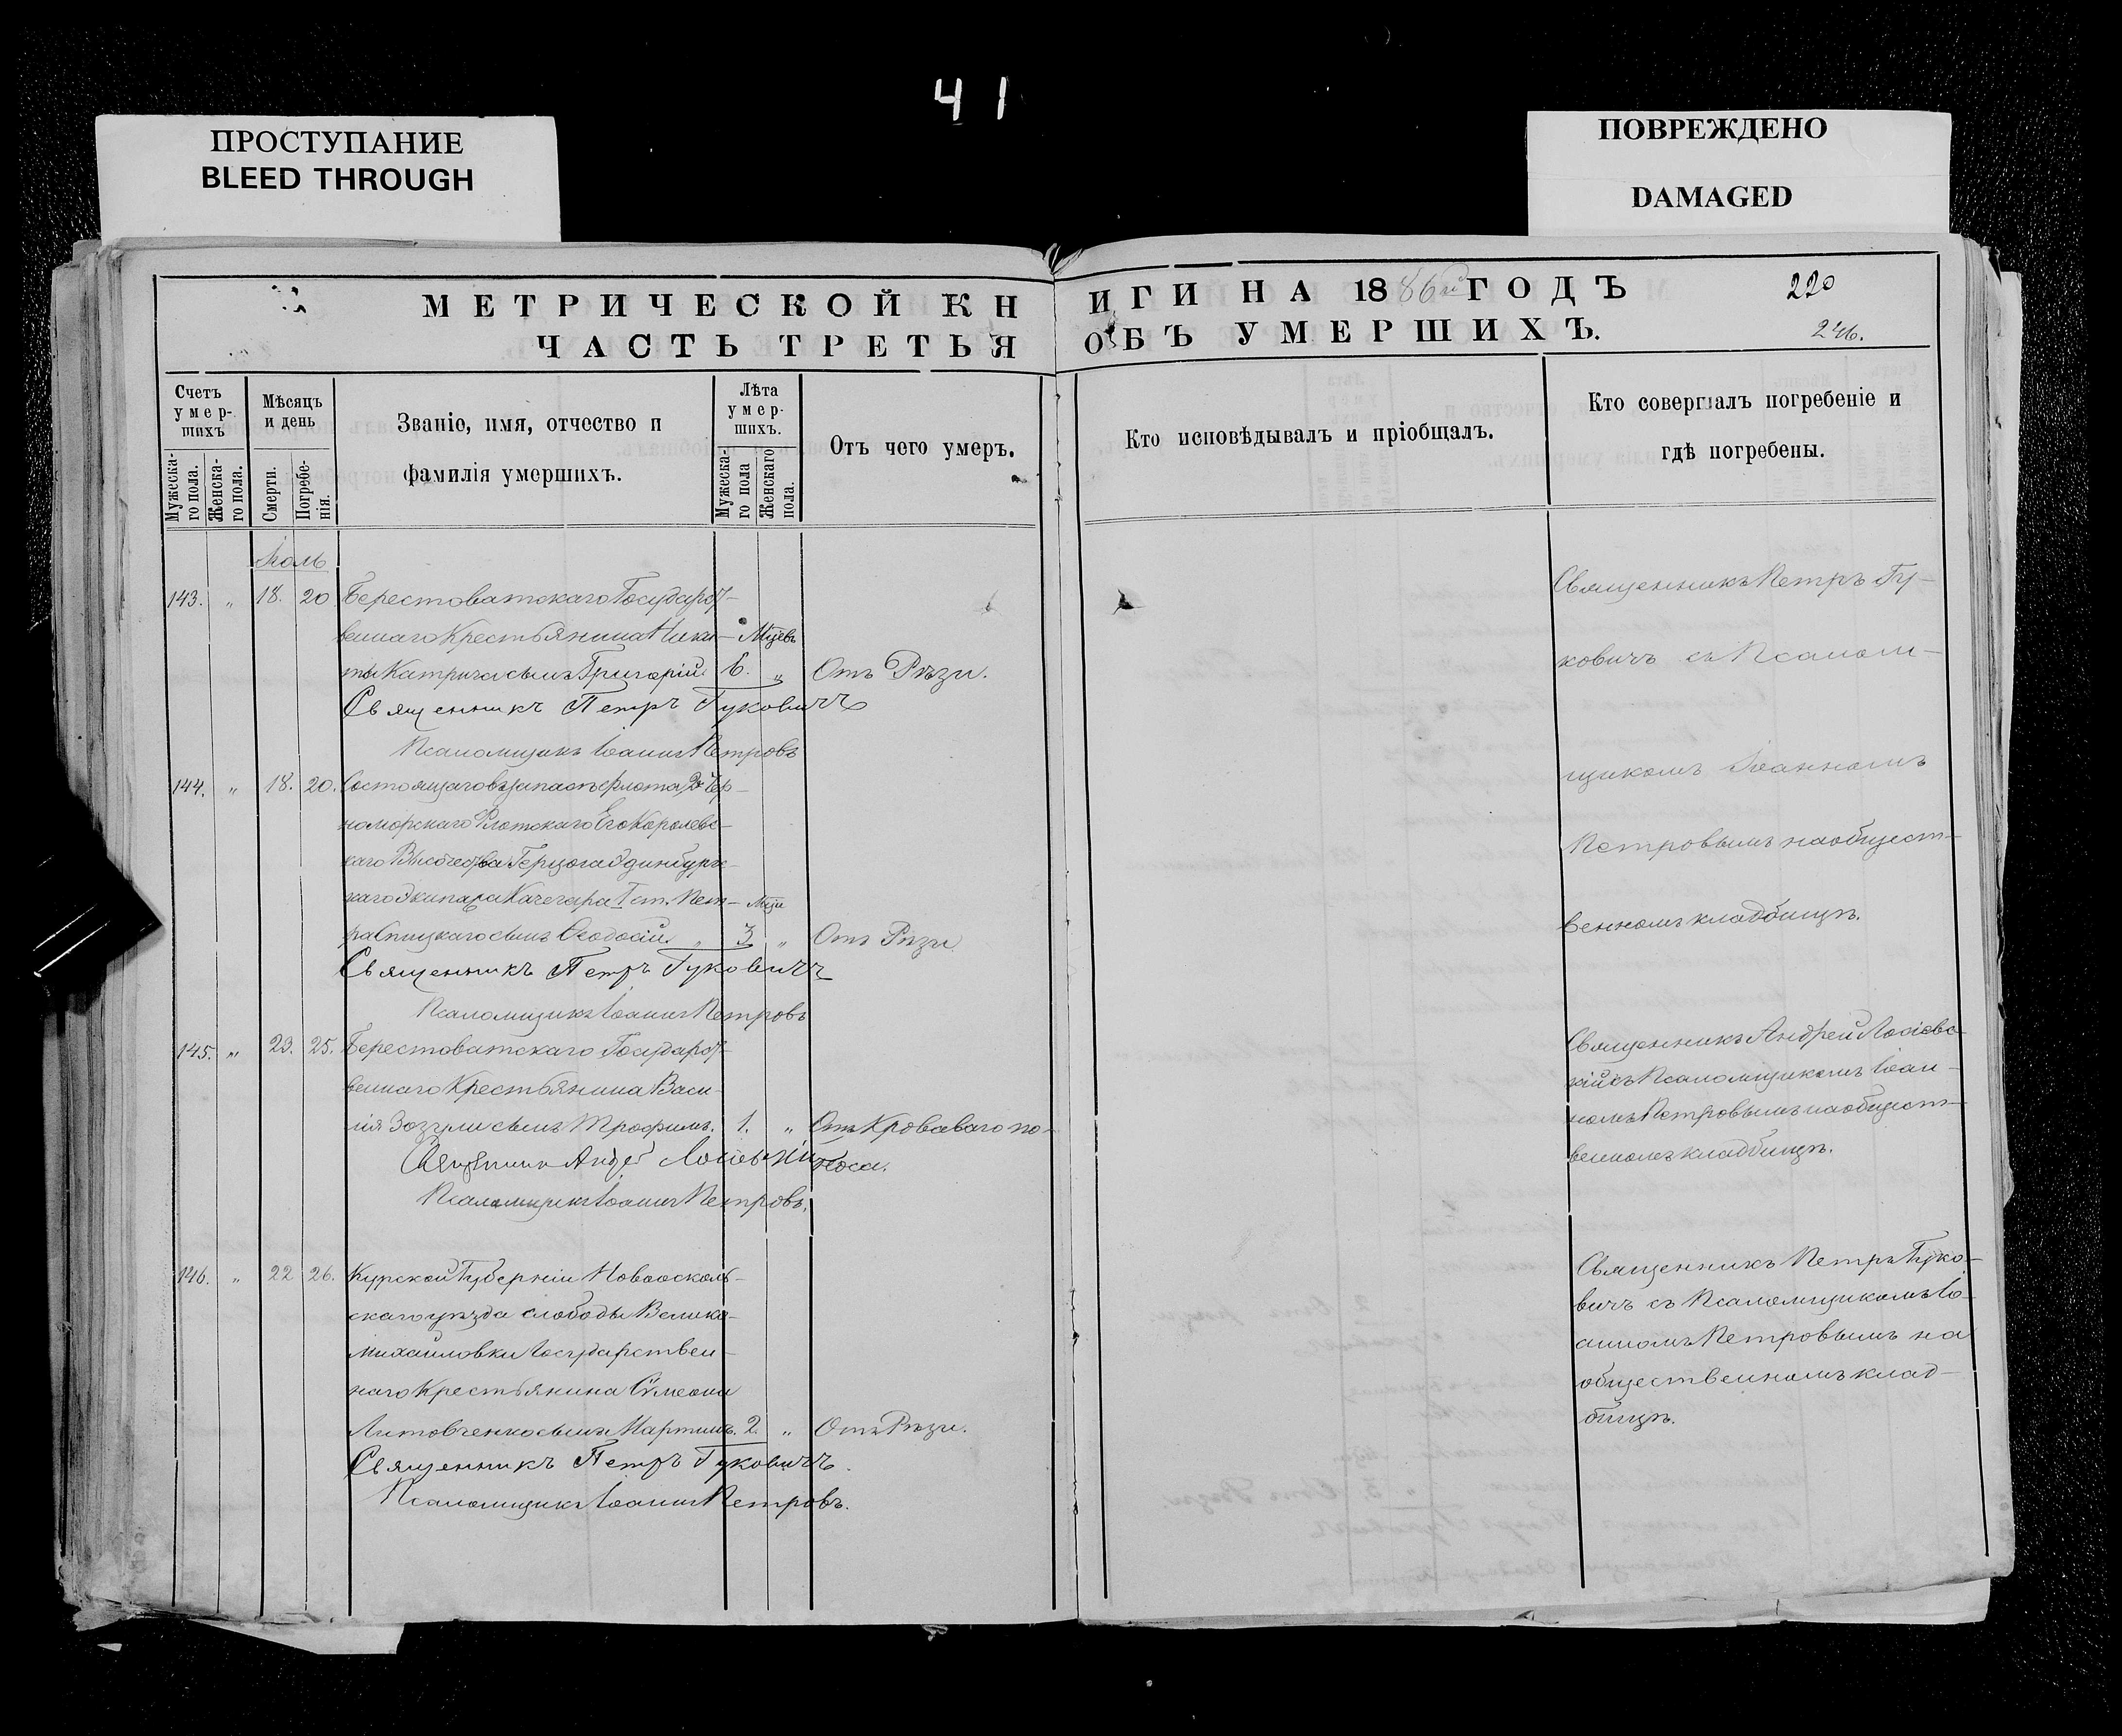 41
ПРОСТУПАНИЕ
BLEED THROUGH
ПОВРЕЖДЕНО
DAMAGED
МЕТРИЧЕСКОЙ КНИГИ НА 1886й ГОДЪ
220
ЧАСТЬ ТРЕТЬЯ ОБЪ УМЕРШИХЪ.
246.
Счетъ умер-шихъ
Мужеска-го пола.
Женска-го пола.
Мѣсяцъ и день
Смерти.
Погребе-нія.
Званіе, имя, отчество и
фамилія умершихъ.
Лѣта умер-шихъ.
Мужеска-го пола
Женскаго пола.
Отъ чего умеръ.
Кто исповѣдывалъ и пріобщалъ.
Кто совершалъ погребеніе и
гдѣ погребены.
Іюль
143. „ 18. 20 Берестоватскаго Государст-
веннаго Крестьянина Ники- Мцевъ
ты Катрича сынъ Григорій 6. „ Отъ Рѣзи.
Священникъ Петръ Гуковичъ
Псаломщикъ Іоаннъ Петровъ
Священникъ Петръ Гу-
ковичъ съ Псалом-
щикомъ Іоанномъ
Петровымъ на общест-
венномъ кладбищѣ.
144. „ 18. 20. Состоящаго въ запасѣ флота 2й Чер-
номорскаго Флотскаго Его Королевс-
каго Высочества Герцога Эдинбургс-
каго Экипажа Кочегара 1 ст. Пет- Мця
ра сынъ Ѳеодосій „ 3 „ Отъ Рѣзи
Священникъ Петръ Гуковичъ
Псаломщикъ Іоаннъ Петровъ
145. „ 23. 25. Берестоватскаго Государст-
веннаго Крестьянина Васи-
лія Зозули сынъ Трофимъ. 1. „ Отъ Кроваваго по-
носа.
Священникъ Андрей Лосіевскій
Псаломщикъ Іоаннъ Петровъ.
Священникъ Андрей Лосіевс-
кій съ Псаломщикомъ Іоан-
номъ Петровымъ на общест-
венномъ кладбищѣ.
146. „ 22 26. Курской Губерніи Новоосколь-
скаго уѣзда слободы Велико-
михайловки Государствен-
наго Крестьянина Симеона
Литовченко сынъ Мартинъ. 2. „ Отъ Рѣзи.
Священникъ Петръ Гуковичъ.
Псаломщикъ Іоаннъ Петровъ.
Священникъ Петръ Гуко-
вичъ съ Псаломщикомъ Іо-
анномъ Петровымъ на
общественномъ клад-
бищѣ.